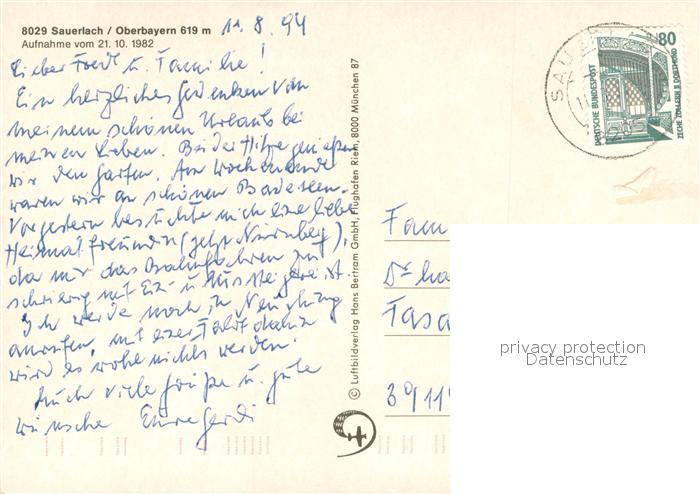 8029 Sauerlach / Oberbayern 619 m 11.8.94
Aufnahme vom 21. 10. 1982
Lieber Fredi u. Familie!
Ein herzliches Gedenken von
meinem schönen Urlaub bei
meinen Lieben. Bei der Hitze genießen
wir den Garten. Am Wochenende
waren wir an schönen Badeseen.
Vorgestern besuchte mich eine liebe
Heimatfreundin (jetzt Nürnberg),
da mir das Bahnfahren zu
schwierig mit Ein- u. Aussteigerei ist.
Ich werde noch in
anrufen, mit einer Fahrt dahin
wird es wohl nichts werden.
Auch viele Grüße u. gute
Wünsche Eure Gerdi
© Luftbildverlag Hans Bertram GmbH, Flughafen Riem, 8000 München 87
SAUERL
80
DEUTSCHE BUNDESPOST
ZECHE ZOLLERN II DORTMUND
Fam
Dr. ha
Tasa
3911
privacy protection
Datenschutz